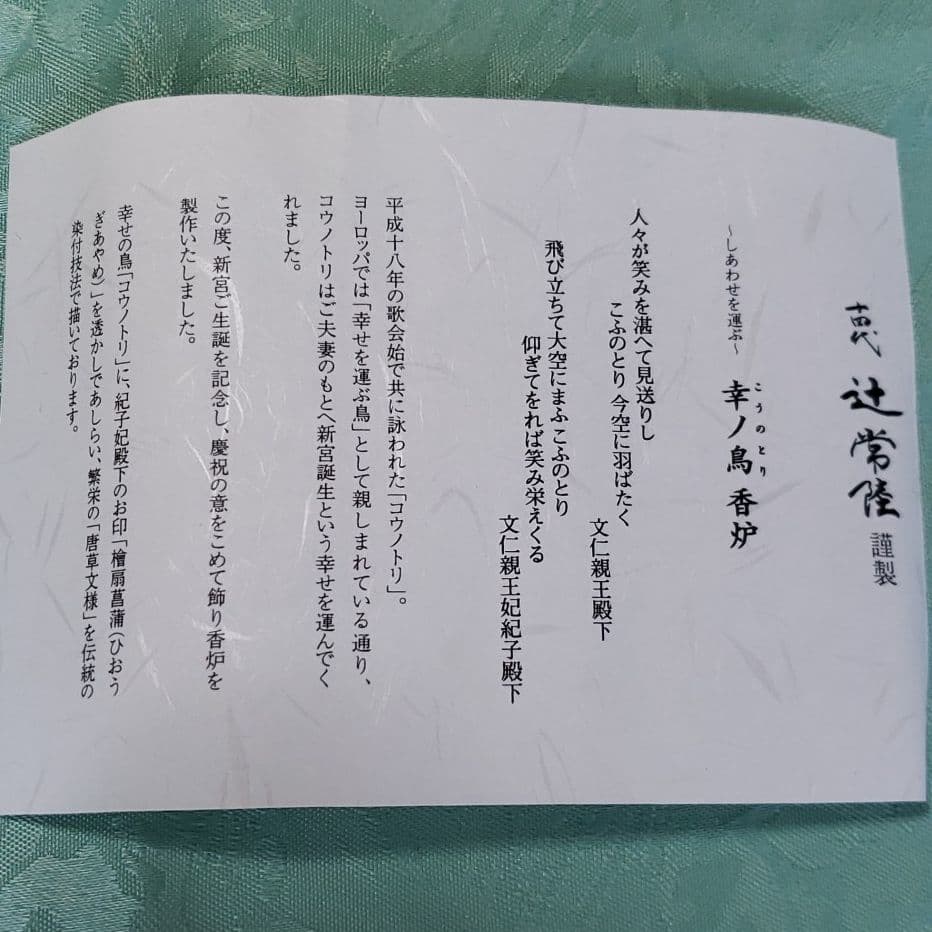 十四代 辻常陸 謹製
～しあわせを運ぶ～ 幸ノ鳥香炉
こうのとり
人々が笑みを湛へて見送りし
こふのとり 今空に羽ばたく
文仁親王殿下
飛び立ちて大空にまふ こふのとり
仰ぎてをれば笑み栄えくる
文仁親王妃紀子殿下
平成十八年の歌会始で共に詠われた「コウノトリ」。
ヨーロッパでは「幸せを運ぶ鳥」として親しまれている通り、
コウノトリはご夫妻のもとへ新宮誕生という幸せを運んでく
れました。
この度、新宮ご生誕を記念し、慶祝の意をこめて飾り香炉を
製作いたしました。
幸せの鳥「コウノトリ」に、紀子妃殿下のお印「檜扇菖蒲(ひおう
ぎあやめ)」を透かしであしらい、繁栄の「唐草文様」を伝統の
染付技法で描いております。